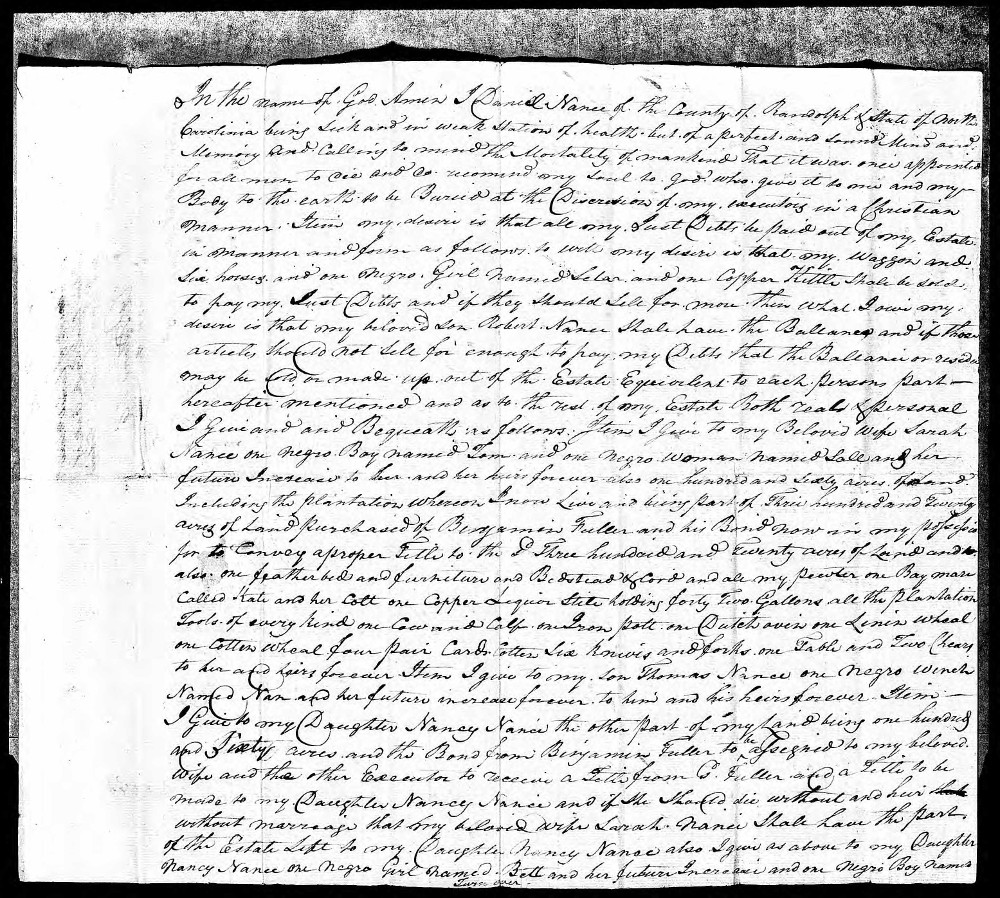 In the name of God Amen I Daniel Nance of the County of Randolph & State of North
Carolinia being Sick and in weak Station of health but of a perfect and Sound Mind and
Memory and Calling to mind the Mortality of mankind That it was once appointed
for all men to die and do recomind my Soul to God who give it to me and my
Body to the earth to be Buried at the Discression of my executors in a Christian
manner Item my desire is that all my Just Debts be paid out of my Estate
in manner and form as follows to with my desire is that my Waggon and
Six horses and one Negro Girl Named Selar and one Copper Kittle Shall be Sold
to pay my Just Debts and if they Should Sell for more then what I owe my
desire is that my beloved Son Robert Nance Shall have the Ballance and if those
articles Should not Sell for enough to pay my Debts that the Ballance or residue
may be Sold or made up out of the Estate Equivelent to each persons part
hereafter mentioned and as to the rest of my Estate Both real & personal
I Give and and Bequeath as follows Item I Give to my Beloved Wife Sarah
Nance one negro Boy named Tom and one Negro Woman named Sall and her
future Increase to her and her heirs forever also one hundred and Sixty acres of Land
Including the plantation whereon I now Live and being part of Three hundred and Twenty
acres of Land purchased of Benjamin Fuller and his Bond now in my possession
for to Convey a proper Title to the Sd Three hundred and Twenty acres of Land and
also one featherbed and furniture and Bedstead & Cord and all my pewter one Bay mare
Called Kate and her Colt one Copper Liquor Still holding forty Two Gallons all the plantation
Tools of every kind one Cow and Calf one Iron pott one Dutch oven one Linin wheal
one Cotten Wheal four pair Cards Cotten Six Knives and forks one Table and Two Chears
to her and heirs forever Item I give to my Son Thomas Nance one Negro Winch
Named Nan and her future increase forever to him and his heirs forever Item
I Give to my Daughter Nancy Nance the other part of my Land being one hundred
and Sixty acres and the Bond from Benjamin Fuller to be assegned to my beloved
Wife and the other Executor to receive a Title from Sd Fuller and a Title to be
made to my Daughter Nancy Nance and if She Should die without and heir
without marreage that my beloved wife Sarah Nance Shall have the part
of the Estate Left to my Daughter Nancy Nance also I give as above to my Daughter
Nancy Nance one negro Girl named Bett and her future Increase and one Negro Boy named
Turn over